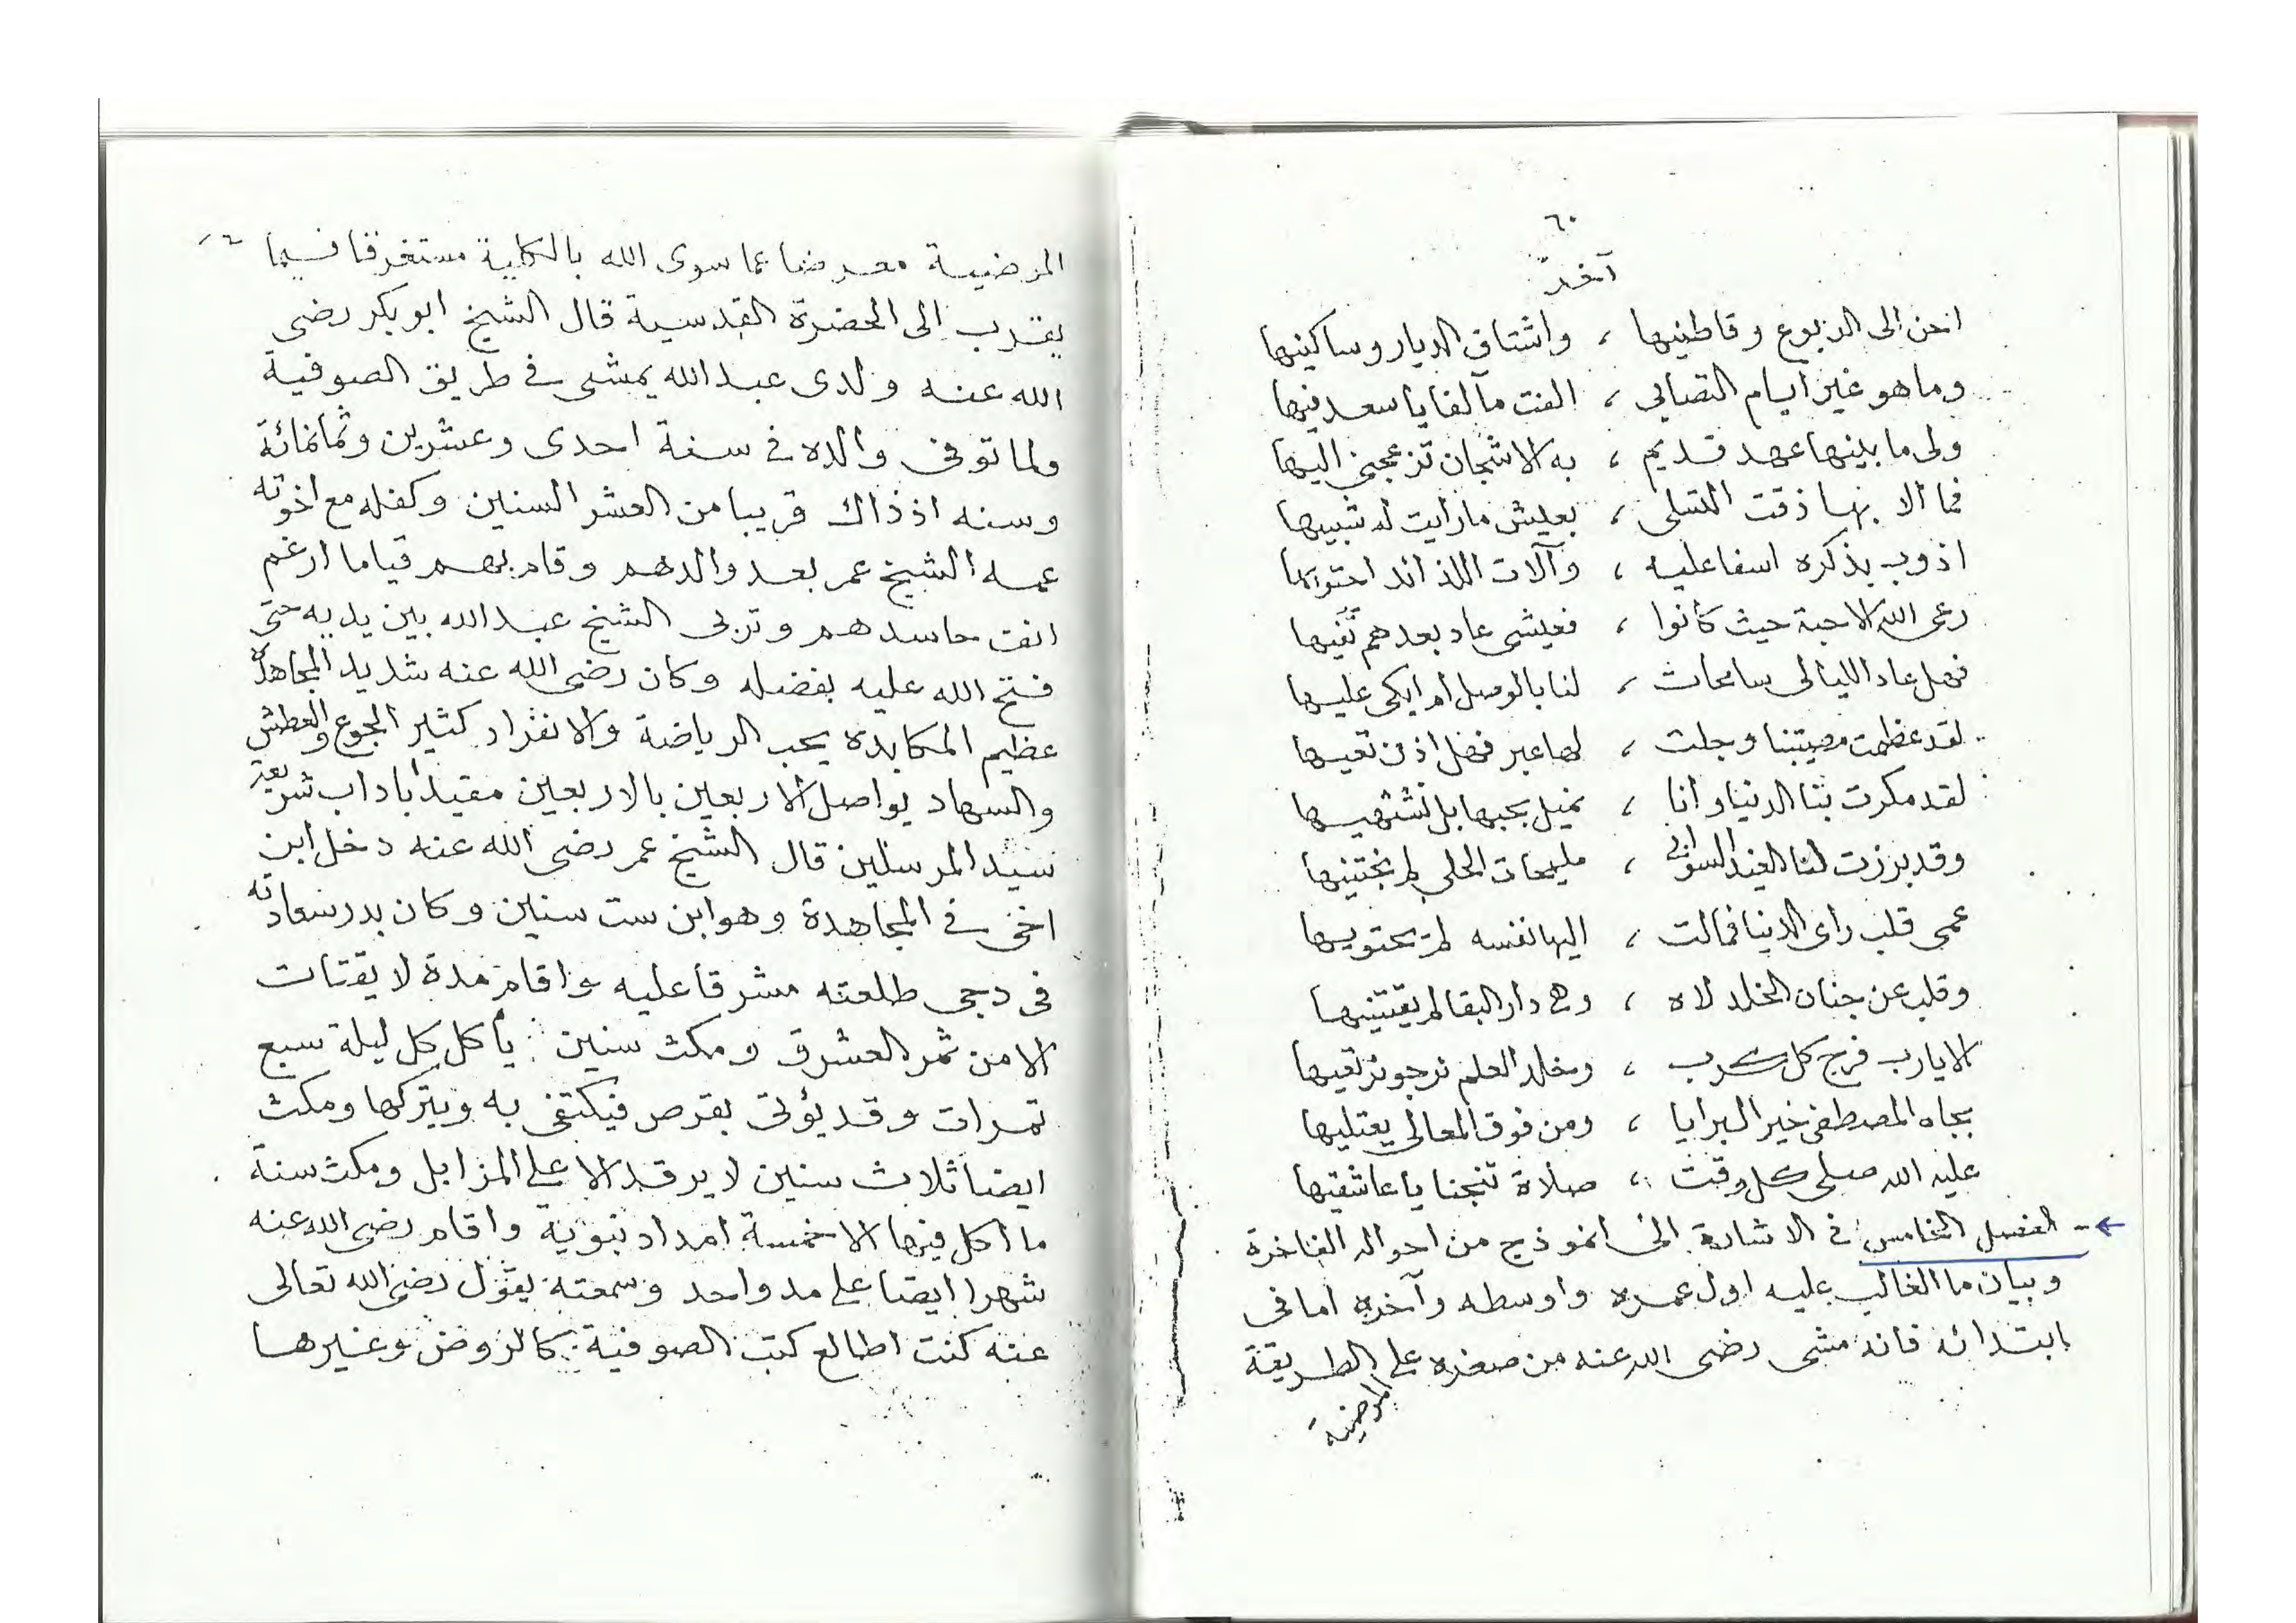 ٦٠
آخر
احن الى الربوع وقاطنيها ، واشتاق الديار وساكنيها
وما هو غير ايام التصابى ، الفت مآلفا يا سعد فيها
ولى ما بينها عهد قديم ، به الاشجان تزعجنى اليها
فما الا بها ذقت التسلى ، بعيش ما رايت له شبيها
اذوب بذكره اسفا عليه ، وآلات اللذائد احتويها
رعى الله الاحبة حيث كانوا ، فعيشى عاد بعدهم
فهل عاد الليالى سامحات ، لنا بالوصل ام ابكى عليها
لقد عظمت مصيبتنا وجلت ، لها عبر فهل اذن تعيها
لقد مكرت بنا الدنيا وانا ، نميل بحبها بل نشتهيها
وقد برزت لنا الغيد السوانى ، مليحات الحلى لم نجتنيها
عمى قلب راى الدنيا فمالت ، اليها نفسه لم يحتويها
وقلب عن جنان الخلد لاه ، وهى دار البقا لم يقتنيها
الا يا رب فرج كل كرب ، وخلد العلم نرجو نرتقيها
بجاه المصطفى خير البرايا ، ومن فوق المعالى يعتليها
عليه الله صلى كل وقت ، صلاة تنجنا يا عاشقيها
الفصل الخامس فى الاشارة الى انموذج من احواله الفاخرة
وبيان ما الغالب عليه اول عمره واوسطه وآخره اما فى
ابتدائه فانه مشى رضى الله عنه من صغره على الطريقة
المرضية
المرضية معرضا عما سوى الله بالكلية مستغرقا فيما
يقرب الى الحضرة القدسية قال الشيخ ابو بكر رضى
الله عنه ولدى عبد الله يمشى فى طريق الصوفية
ولما توفى والده فى سنة احدى وعشرين وثمانمائة
وسنه اذ ذاك قريبا من العشر السنين وكفله مع اخوته
عمه الشيخ عمر بعد والدهم وقام بهم قياما ارغم
انف حاسدهم وتربى الشيخ عبد الله بين يديه حتى
فتح الله عليه بفضله وكان رضى الله عنه شديد المجاهدة
عظيم المكابدة يحب الرياضة والانفراد كثير الجوع والعطش
والسهاد يواصل الاربعين بالاربعين مقيدا باداب شريعة
سيد المرسلين قال الشيخ عمر رضى الله عنه دخل ابن
اخى فى المجاهدة وهو ابن ست سنين وكان بدر سعادته
فى دجى طلعته مشرقا عليه واقام مدة لا يقتات
الا من ثمر العشرق ومكث سنين يأكل كل ليلة سبع
تمرات وقد يؤتى بقرص فيكتفى به ويتركها ومكث
ايضا ثلاث سنين لا يرقد الا على المزابل ومكث سنة
ما اكل فيها الا خمسة امداد نبوية واقام رضى الله عنه
شهرا ايضا على مد واحد وسمعته يقول رضى الله تعالى
عنه كنت اطالع كتب الصوفية كالروض وغيرها